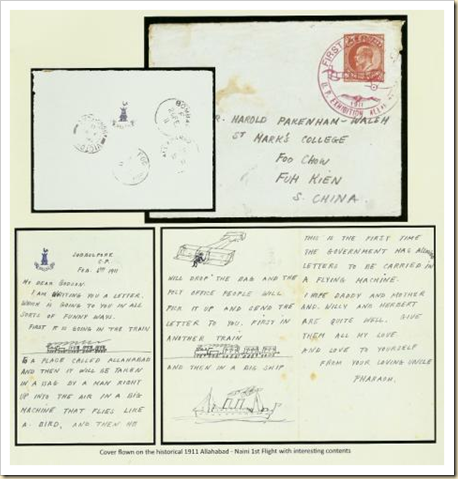 FIRST
U.P. EXHIBITION
1911
HAROLD PAKENHAM-WALSH
ST MARK'S COLLEGE
FOO CHOW
FUH KIEN
S. CHINA
JUBBULPORE
C.P.
FEB. 1911
MY DEAR
I AM WRITING YOU A LETTER
WHICH IS GOING TO YOU IN ALL
SORTS OF FUNNY WAYS.
FIRST IT IS GOING IN THE TRAIN
TO A PLACE CALLED ALLAHABAD
AND THEN IT WILL BE TAKEN
IN A BAG BY A MAN RIGHT
UP INTO THE AIR IN A BIG
MACHINE THAT FLIES LIKE
A BIRD, AND THEN HE
WILL DROP THE BAG AND THE
POST OFFICE PEOPLE WILL
PICK IT UP AND SEND THE
LETTER TO YOU. FIRST IN
ANOTHER TRAIN
AND THEN IN A BIG SHIP
THIS IS THE FIRST TIME
THE GOVERNMENT HAS ALLOWED
LETTERS TO BE CARRIED IN
A FLYING MACHINE.
I HOPE DADDY AND MOTHER
AND WILLY AND HERBERT
ARE QUITE WELL. GIVE
THEM ALL MY LOVE
AND LOVE TO YOURSELF
FROM YOUR LOVING UNCLE
PHARAOH.
Cover flown on the historical 1911 Allahabad - Naini 1st Flight with interesting contents